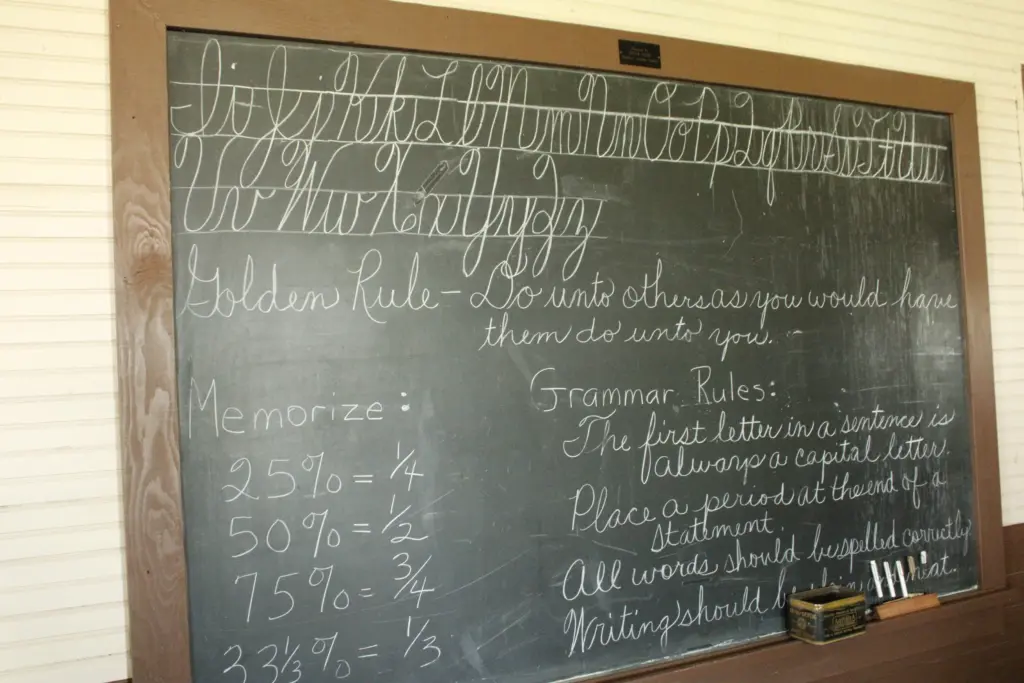 Ii Jj Kk Ll Mm Nn Oo Pp Qq Rr Ss Tt Uu
Vv Ww Xx Yy Zz
Golden Rule - Do unto others as you would have
them do unto you.
Memorize:
25% = 1/4
50% = 1/2
75% = 3/4
33 1/3 % = 1/3
Grammar Rules:
The first letter in a sentence is
always a capital letter.
Place a period at the end of a
statement.
All words should be spelled correctly
Writing should be neat.